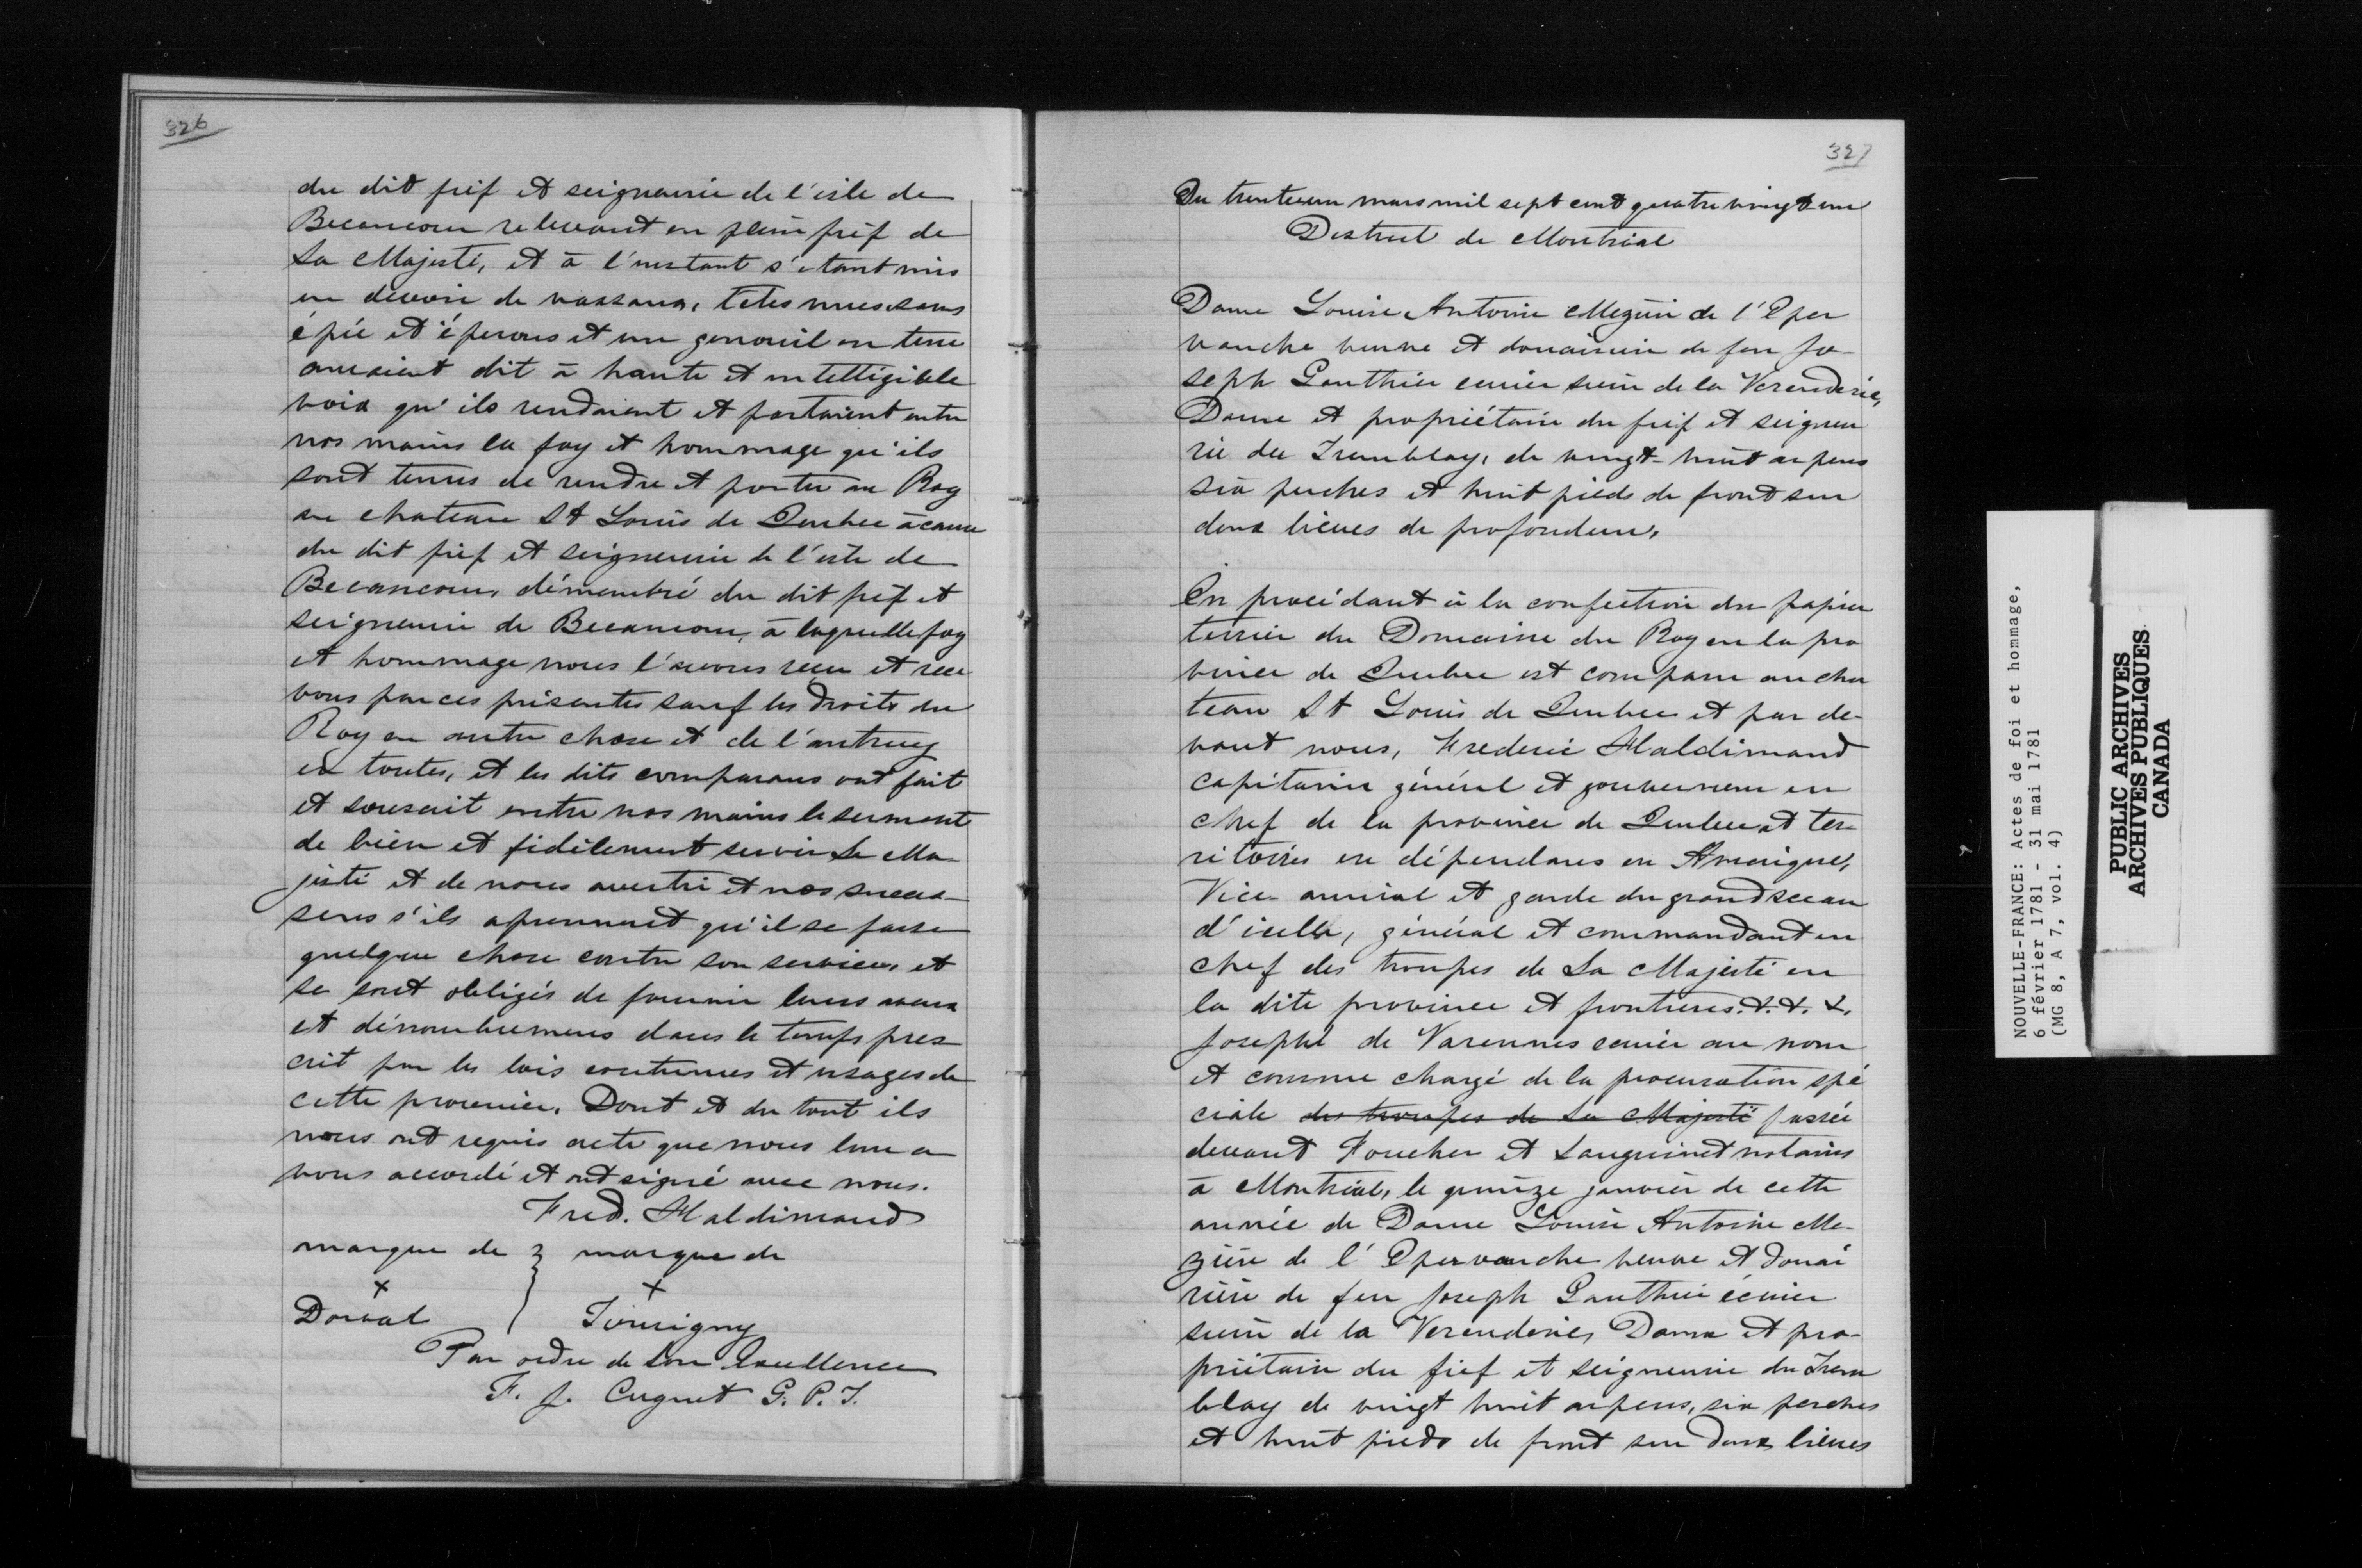 326
du dit fief et seigneurie de l'isle de
Becancour relevant en plein fief de
Sa Majesté, et à l'instant s'etant mis
en devoir de vassaux, têtes nues sans
épée et éperons et un genouil en terre
auraient dit à haute et intelligible
voix qu'ils rendaient et portaient entre
nos mains la foy et hommage qu'ils
sont tenus de rendre et porter au Roy
au chateau St Louis de Quebec à cause
du dit fief et seigneurie de l'isle de
Becancour, démembré du dit fief et
seigneurie de Becancour, à laquelle foy
et hommage nous l'avons recu et rece
vons par ces présentes sauf les droits du
Roy en autre chose et de l'autruy
en toutes, et les dits comparans ont fait
et souscrit entre nos mains le serment
de bien et fidèlement servir Sa Ma-
jesté et de nous avertir et nos succes-
seurs s'ils aprennent qu'il se fasse
quelque chose contre son service, et
se sont obligés de fournir leurs aveux
et dénombremens dans le temps pres
crit par les lois coutumes et usages de
cette province. Dont et du tout ils
nous ont requis acte que nous leur a
vons accordé et ont signé avec nous.
Fred. Haldimand
marque de } marque de
x } x
Dorval } Tourigny
Par ordre de Son Excellence
F. J. Cugnet G. P. T.
327
Du trenteun mars mil sept cent quatre vingt un
District de Montréal
Dame Louise Antoine Mezière de l'Eper
vanche veuve et douairière de feu Jo-
seph Gauthier ecuier sieur de la Verenderie,
Dame et propriétaire du fief et seigneu
rie du Tremblay, de vingt-huit arpens
six perches et huit pieds de front sur
deux lieues de profondeur,
En procédant à la confection du papier
terrier du Domaine du Roy en la pro
vince de Quebec est comparu au cha
teau St Louis de Quebec et par de-
vant nous, Frederic Haldimand
capitaine général et gouverneur en
chef de la province de Quebec et ter-
ritoires en dépendans en Amerique,
Vice amiral et garde du grand sceau
d'icelle, général et commandant en
chef des troupes de Sa Majesté en
la dite province et frontieres. &. &. &.
Joseph de Varennes ecuier au nom
et comme chargé de la procuration spé
ciale des troupes de Sa Majesté passée
devant Foucher et Sanguinet notaires
à Montréal, le quinze janvier de cette
année de Dame Louise Antoine Me-
zière de l'Epervanche veuve et douai
rière de feu Joseph Gauthier écuier
sieur de la Verenderie, Dame et pro-
priétaire du fief et seigneurie du Trem
blay de vingt huit arpens, six perches
et huit pieds de front sur deux lieues
NOUVELLE-FRANCE: Actes de foi et hommage,
6 février 1781 - 31 mai 1781
(MG 8, A 7, vol. 4)
PUBLIC ARCHIVES
ARCHIVES PUBLIQUES
CANADA